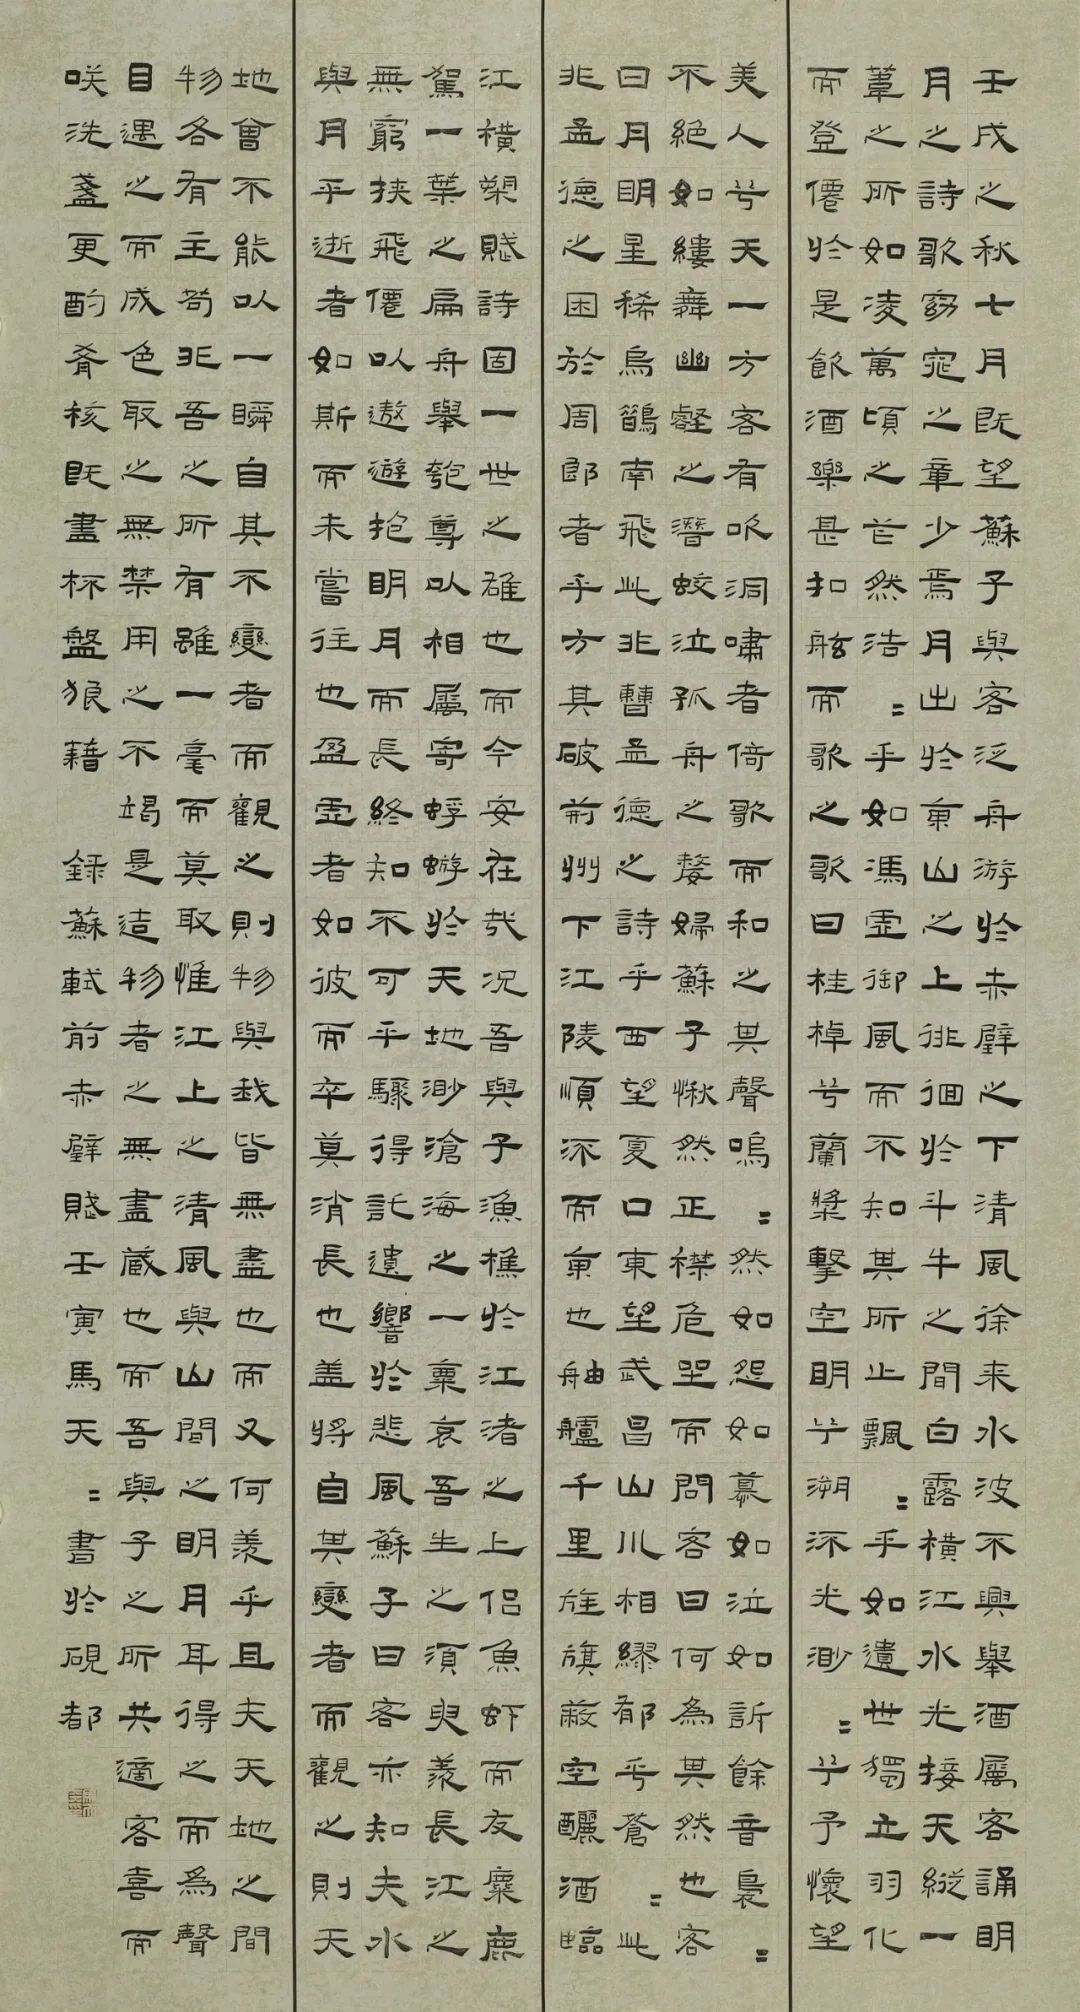 壬戌之秋七月既望蘇子與客泛舟游於赤壁之下清風徐来水波不興舉酒屬客誦明
月之詩歌窈窕之章少焉月出於東山之上徘徊於斗牛之間白露橫江水光接天縱一
葦之所如凌萬頃之茫然浩〻乎如馮虛御風而不知其所止飄〻乎如遺世獨立羽化
而登僊於是飲酒樂甚扣舷而歌之歌曰桂棹兮蘭槳擊空明兮溯流光渺〻兮予懷望
美人兮天一方客有吹洞嘯者倚歌而和之其聲嗚〻然如怨如慕如泣如訴餘音裊〻
不絕如縷舞幽壑之潛蛟泣孤舟之嫠婦蘇子愀然正襟危坐而問客曰何為其然也客
曰月明星稀烏鵲南飛此非曹孟德之詩乎西望夏口東望武昌山川相繆郁乎蒼〻此
非孟德之困於周郎者乎方其破荊州下江陵順流而東也舳艫千里旌旗蔽空釃酒臨
江橫槊賦詩固一世之雄也而今安在哉況吾與子漁樵於江渚之上侶魚蝦而友麋鹿
駕一葉之扁舟舉匏尊以相屬寄蜉蝣於天地渺滄海之一粟哀吾生之須臾羨長江之
無窮挾飛僊以遨遊抱明月而長終知不可乎驟得託遺響於悲風蘇子曰客亦知夫水
與月乎逝者如斯而未嘗往也盈虛者如彼而卒莫消長也蓋將自其變者而觀之則天
地曾不能以一瞬自其不變者而觀之則物與我皆無盡也而又何羨乎且夫天地之間
物各有主苟非吾之所有雖一毫而莫取惟江上之清風與山間之明月耳得之而為聲
目遇之而成色取之無禁用之不竭是造物者之無盡藏也而吾與子之所共適客喜而
咲洗盞更酌肴核既盡杯盤狼藉 錄蘇軾前赤壁賦壬寅馬天〻書於硯都